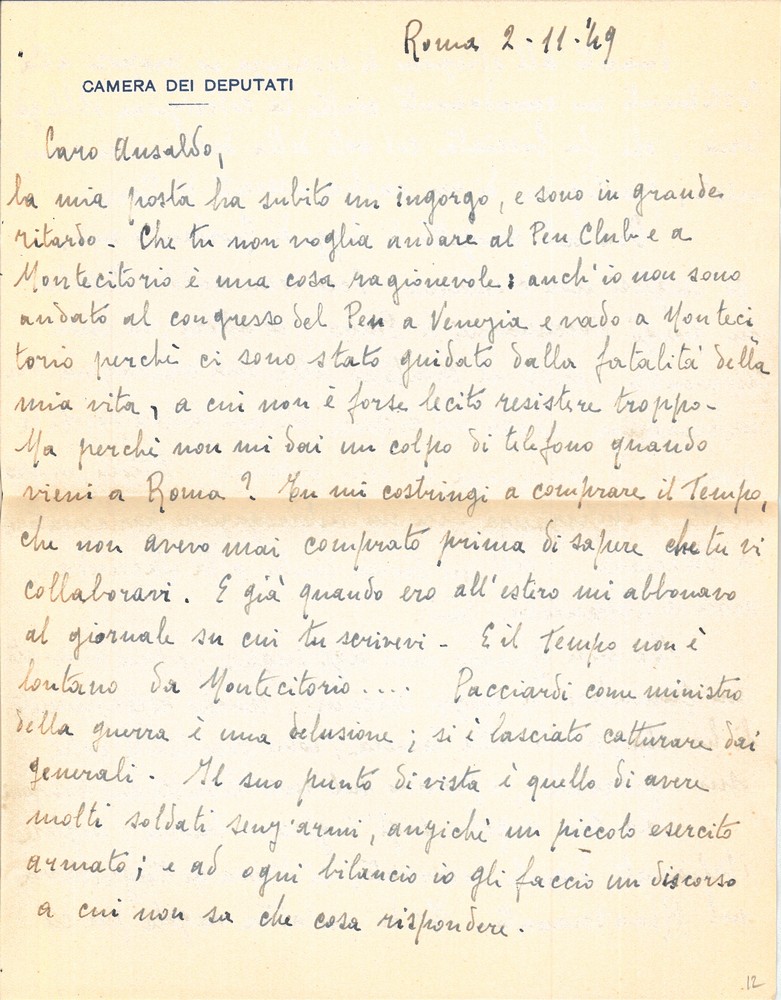 Roma 2-11-'49
CAMERA DEI DEPUTATI
Caro Ansaldo,
la mia posta ha subito un ingorgo, e sono in grande
ritardo - Che tu non voglia andare al Pen Club e a
Montecitorio è una cosa ragionevole: anch'io non sono
andato al congresso del Pen a Venezia e vado a Monteci
torio perchè ci sono stato guidato dalla fatalità della
mia vita, a cui non è forse lecito resistere troppo -
Ma perchè non mi dai un colpo di telefono quando
vieni a Roma? Tu mi costringi a comprare il Tempo,
che non avevo mai comprato prima di sapere che tu vi
collaboravi. E già quando ero all'estero mi abbonavo
al giornale su cui tu scrivevi - E il Tempo non è
lontano da Montecitorio.... Pacciardi come ministro
della guerra è una delusione; si è lasciato catturare dai
generali - Il suo punto di vista è quello di avere
molti soldati senz'armi, anzichè un piccolo esercito
armato; e ad ogni bilancio io gli faccio un discorso
a cui non sa che cosa rispondere.
12